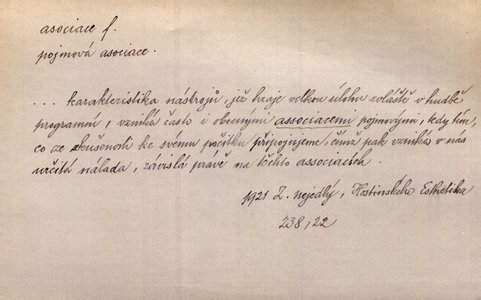 asociace f.
pojmová asociace.
... karakteristika nástrojů, jež hraje velkou úlohu zvláště v hudbě
programní, vzniká často i obecnými associacemi pojmovými, tedy tím,
co ze zkušenosti ke svému počitku připojujeme, čímž pak vzniká v nás
určitá nálada, závislá právě na těchto associacích.
1921 Z. Nejedlý, Hostinského Esthetika
238, 22